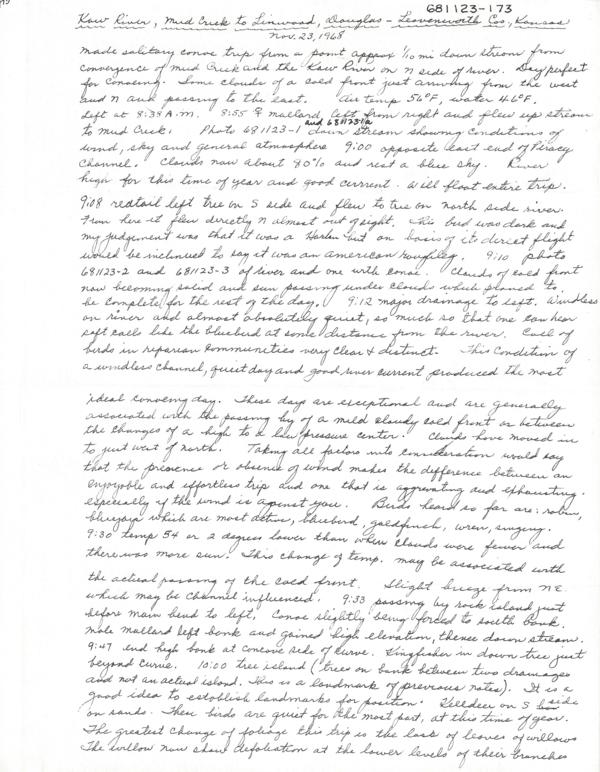 681123-173
Kaw River, Mud Creek to Linwood, Douglas - Leavenworth Cos, Kansas
Nov. 23, 1968
Made solitary canoe trip from a point approx 1/10 mi down stream from
convergence of Mud Creek and the Kaw River on N side of river. Day perfect
for canoeing. Some clouds of a cold front just arriving from the west
and N and passing to the east. Air temp 56°F, water 46°F.
Left at 8:38 A.M. 8:55 ♀ mallard left from right and flew up stream
to Mud Creek. Photo 681123-1 and 681123-1a down stream showing conditions of
wind, sky and general atmosphere 9:00 opposite east end of Piracy
Channel. Clouds now about 80% and rest a blue sky. River
high for this time of year and good current. Will float entire trip.
9:08 redtail left tree on S side and flew to tree on north side river.
From here it flew directly N almost out of sight. This bird was dark and
my judgement was that it was a Harlan but on basis of its direct flight
would be inclined to say it was an american roughleg. 9:10 photo
681123-2 and 681123-3 of river and one with canoe. Clouds of cold front
now becoming solid and sun passing under clouds which promed to
be complete for the rest of the day. 9:12 major drainage to left. Windless
on river and almost absolutely quiet, so much so that one can hear
soft calls like the bluebird at some distance from the river. Call of
birds in riparian communities very clear & distinct. This condition of
a windless channel, quiet day and good river current produced the most
ideal canoeing day. These days are exceptional and are generally
associated with the passing by of a mild cloudy cold front or between
the changes of a high to a low pressure center. Clouds have moved in
to just west of north. Taking all factors into consideration would say
that the presence or absence of wind makes the difference between an
enjoyable and effortless trip and one that is aggravating and exhausting.
especially if the wind is against you. Birds heard so far are: robin,
bluejays which are most active, bluebird, goldfinch, wren, singing.
9:30 temp 54 or 2 degrees lower than when clouds were fewer and
there was more sun. This change of temp. may be associated with
the actual passing of the cold front. Slight breeze from N.E.
which may be channel influenced. 9:33 passing by rock island just
before main bend to left. Canoe slightly being forced to south bank.
Male mallard left bank and gained high elevation, thence down stream.
9:47 end high bank at concave side of curve. Kingfisher in down tree just
beyond curve. 10:00 tree island (trees on bank between two drainages
and not an actual island. This is a landmark of previous notes). It is a
good idea to establish landmarks for position. Killdeer on S side
on sands. These birds are quiet for the most part, at this time of year.
The greatest change of foliage this trip is the loss of leaves of willows
The willow now show defoliation at the lower levels of their branches